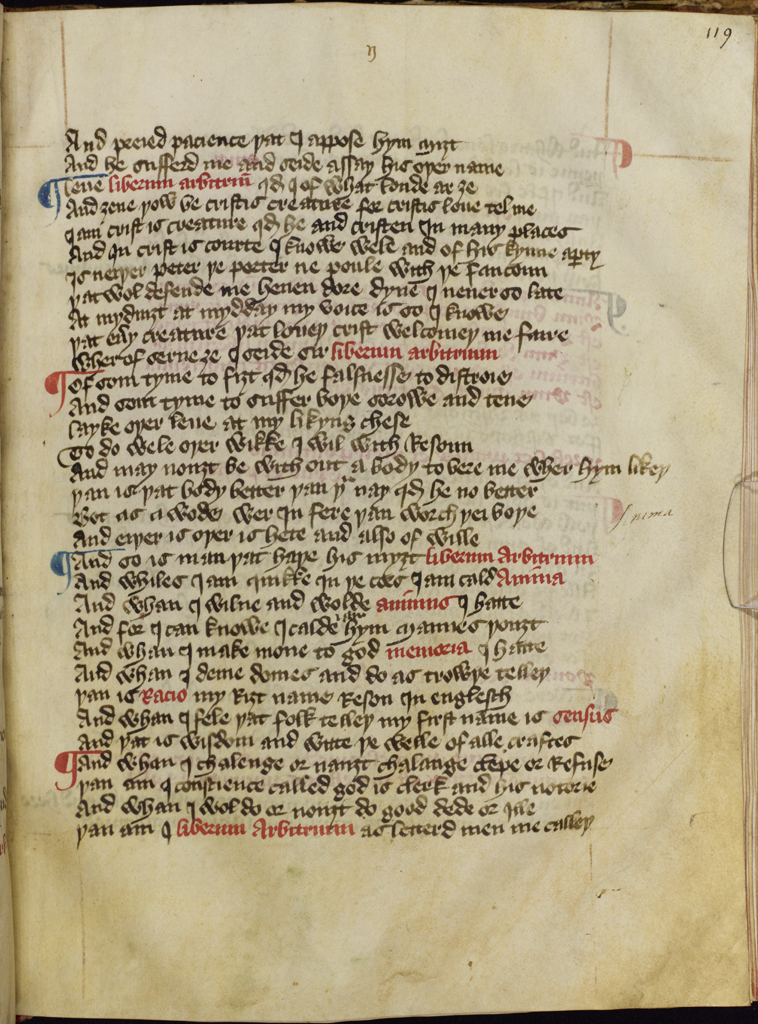 119
y
And preied pacience yat I appose hym myzt
And he suffred me and seide assay his oyer name
¶ Leue liberum arbitriū qd I of what londe ar ze
And zene yow be cristis creature for cristis loue tel me
I am crist is creature qd he and cristen In many places
And In crist is courte I knowe wele and of his kynne a party
Is neiyer peter ye porter ne poule with ye fauconn
yat wol defende me heuen dore dyne I neuer so late
At mydnizt at mydday my voice is so I knowe
yat eny creature yat louey crist welcomey me faire
Wher of serue ze I seide sir liberum arbitrium
¶ Of som tyme to fizt qd he falsnesse to distroie
And som tyme to suffer boye sorowe and tene
layke oyer leue at my likyng chese
To do wele oyer wikke I wil with Resoun
And may nouzt be with out a body to bere me wher hym likey
yan is yat body better yan yu nay qd he no better
Bot as a wode wer In fere yan worch yei boye
And eiyer is oyer is hete and also of wille
Anima
¶ And so is man yat haye his myzt liberum Arbitrium
And whiles I am quikke In ye cors I am cald Amina
And whan I wilne and wolde animus I hatte
And for I can knowe I calde am hym mannes youzt
And whan I make mone to god memoria I hatte
And whan I deme domes and do as trowye telley
yan is Racio my Rizt name Reson In englesch
And whan I fele yat folk telley my first name is sensus
And yat is wisdom and witte ye welle of alle craftes
¶ And whan I chalenge or nauzt chalange chepe or Refuse
yan am I conscience called god is clerk and his notorie
And whan I wol do or nouzt do good dede or ille
yan am I liberum Arbitrium as letterd men me calley